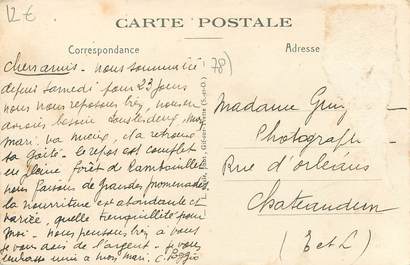 12€
CARTE POSTALE
Correspondance
Adresse
78)
Chers amis - nous sommes ici
depuis samedi pour 23 jours
nous nous reposons bien, nous en
avions besoin tous les deux, mon
mari va mieux, il a retrouvé
sa gaîté. le repos est complet
en pleine forêt de Rambouillet
nous faisons de grandes promenades
la nourriture est abondante et
variée, quelle tranquillité pour
moi - nous pensons bien à vous
je vous dois de l'argent - je vous
embrasse unie à mon mari.
Madame
Photograph
Rue d'orléans
Chateaudun
(E et L)